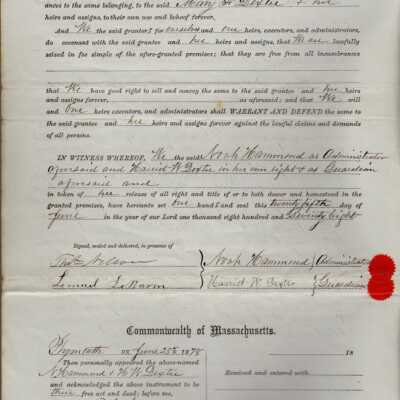 ances to the same belonging, to the said Mary H Dexter & her
heirs and assigns, to their own use and behoof forever.
And We the said grantors for ourselves and our heirs, executors, and administrators,
do covenant with the said grantee and her heirs and assigns, that We are lawfully
seized in fee simple of the afore-granted premises; that they are free from all incumbrances
that We have good right to sell and convey the same to the said grantee and her heirs
and assigns forever, as aforesaid; and that We will
and our heirs, executors, and administrators shall WARRANT AND DEFEND the same to
the said grantee and her heirs and assigns forever against the lawful claims and demands
of all persons.
IN WITNESS WHEREOF, We the said Noah Hammond as Administrator
aforesaid and Harriet W. Dexter in her own right & as Guardian
aforesaid and
in token of her release of all right and title of or to both dower and homestead in the
granted premises, have hereunto set our hands and seal this twenty fifth day of
June in the year of our Lord one thousand eight hundred and Seventy Eight
Signed, sealed and delivered, in presence of
Nelson Noah Hammond Administrator
Lemuel LeBaron Harriet W. Dexter Guardian
Commonwealth of Massachusetts.
Plymouth ss. June 25th 1878
18
Then personally appeared the above-named
N Hammond & H W Dexter
Received and entered with
and acknowledged the above instrument to be
their free act and deed; before me,